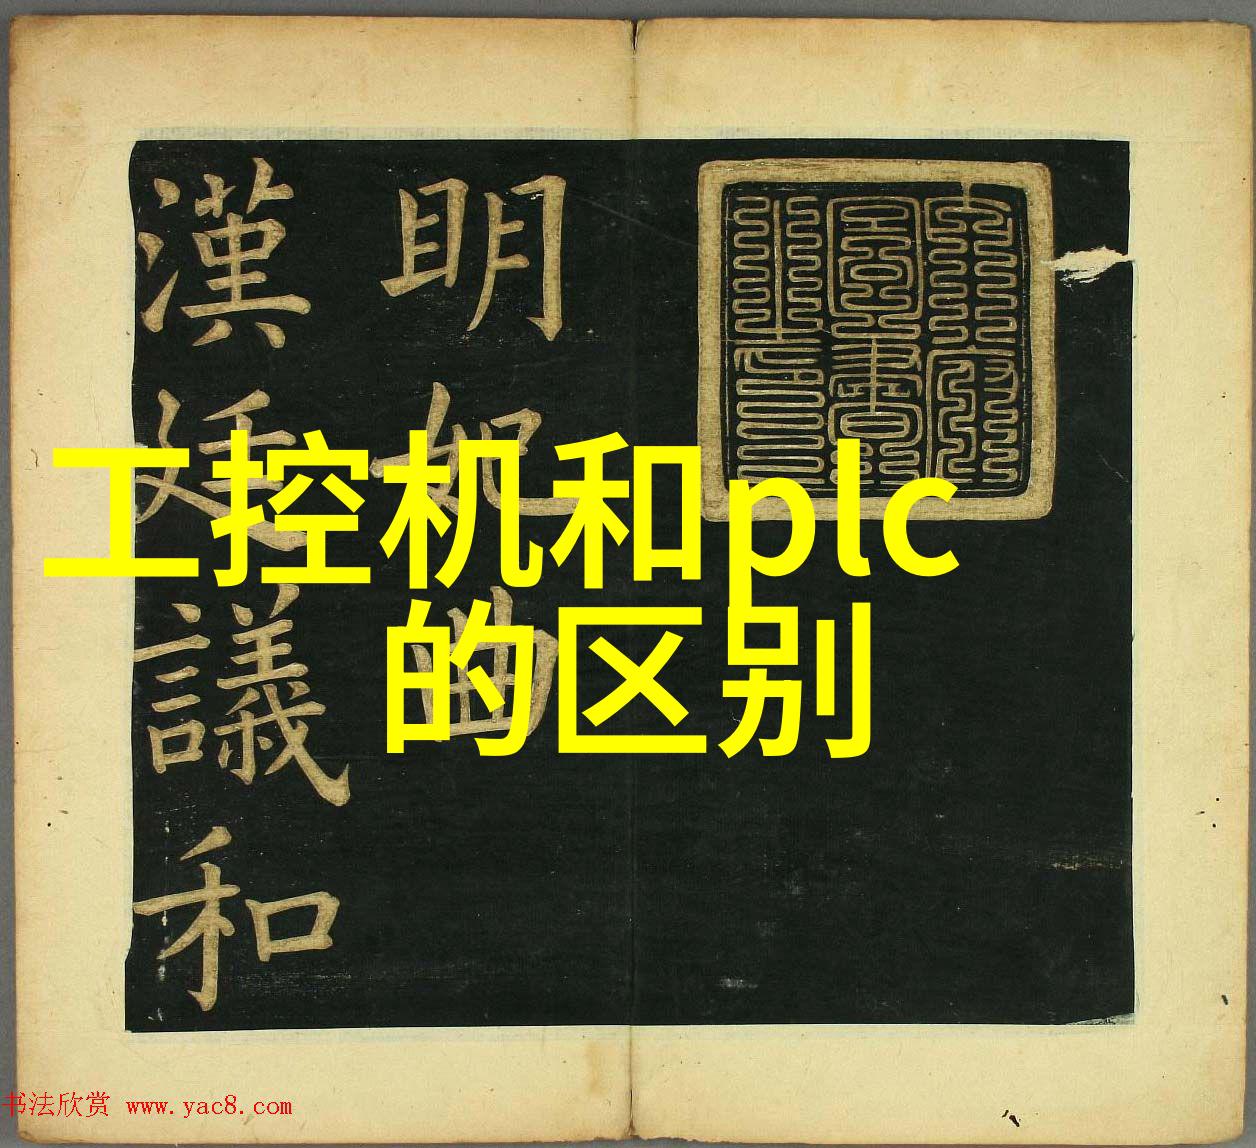 工控机和plc
的区别
明妃曲
漢廷議和
书法欣赏 www.yac8.com